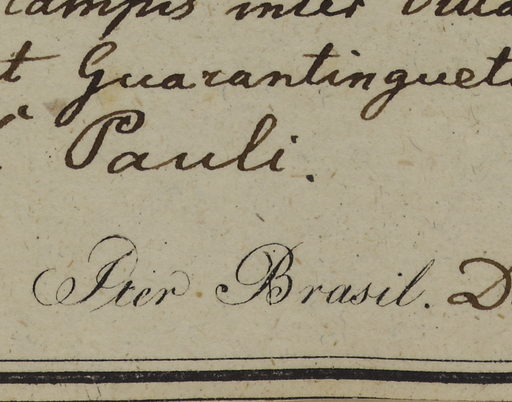 campis inter
t Guarantinguet
Pauli.
Iter Brasil. D